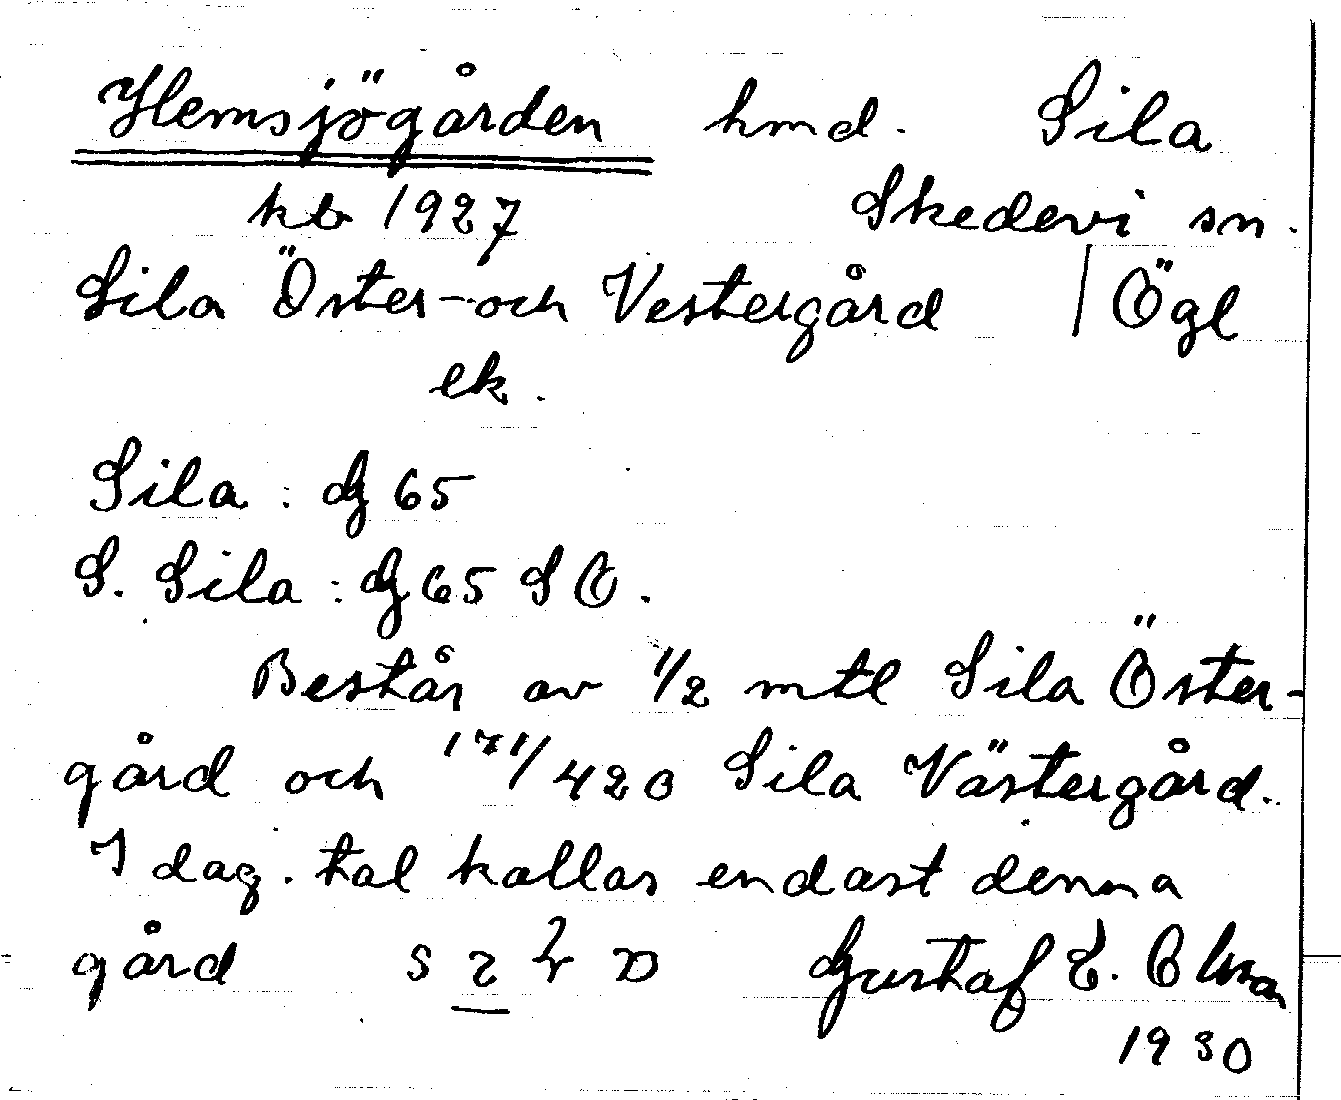 Hemsjögården hmd. Sila
kb 1927 Skedevi sn.
Sila Öster- och Vestergård / Ögl
ek.
Sila : dg 65
S. Sila : dg 65 S O.
Består av 1/2 mtl Sila Öster-
gård och 171/420 Sila Västergård.
I dag. tal kallas endast denna
gård
Gustaf E. Olsson
1930